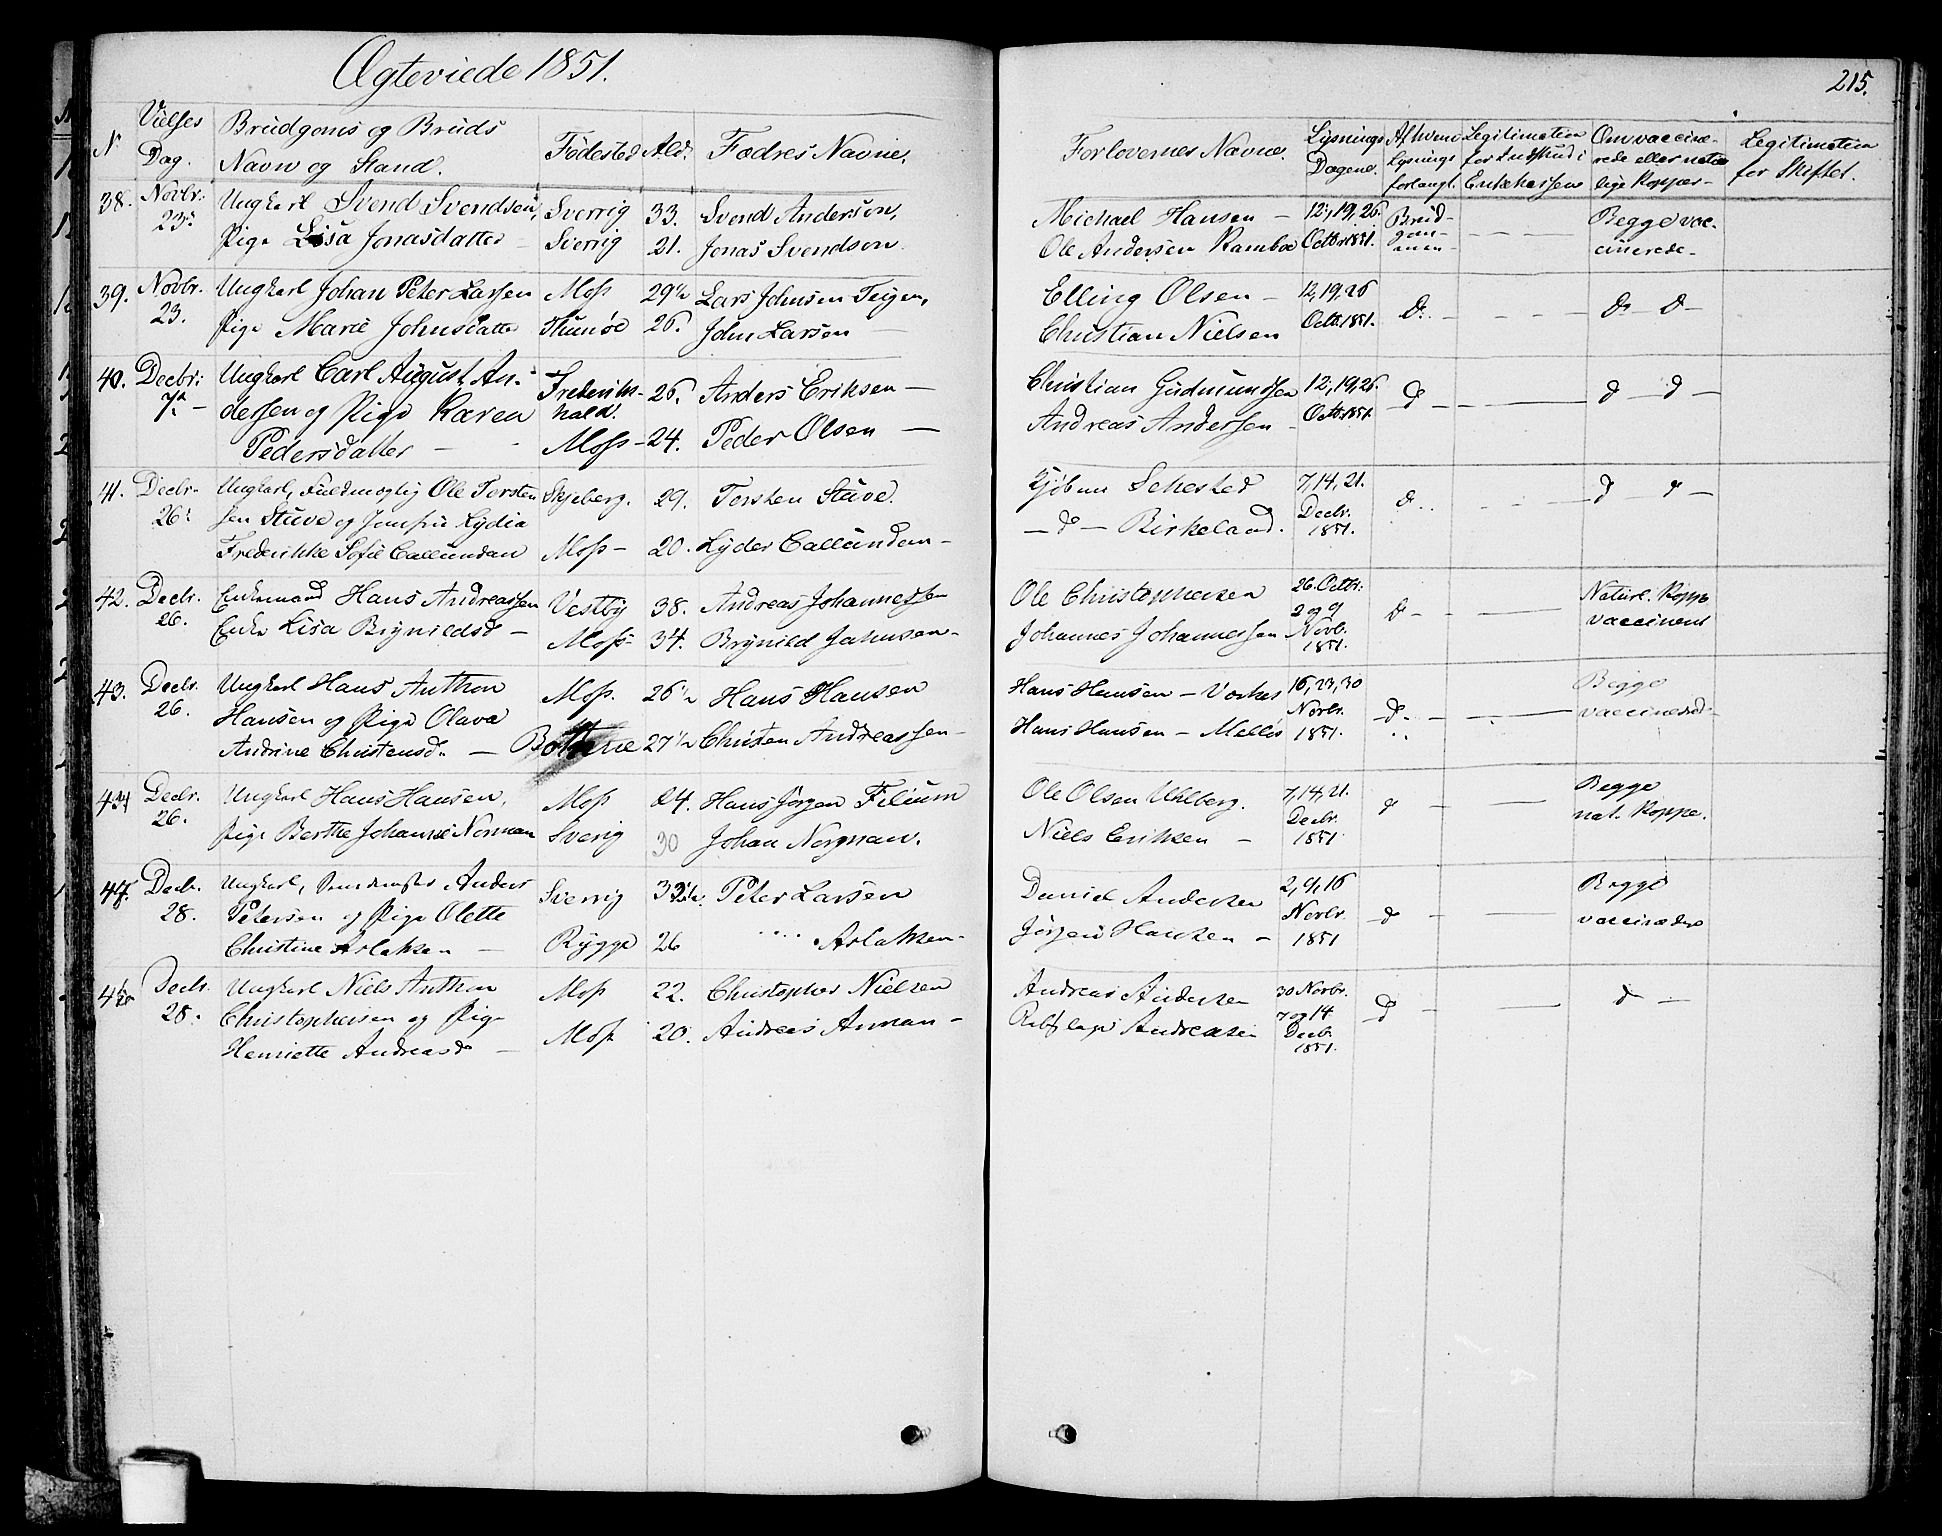 Ægteviede 1851.
215.
N
Vielses
Dag.
Brudgoms og Bruds
Navn og Stand.
Fødested
Ald.
Fædres Navne.
Forlovernes Navne.
Lysnings
Dagene.
Af hvem
Lysnings
forlangt.
Legitimation
for Indskud i
Enkekassen
Om vaccine-
rede eller natur
lige Kopper-
Legitimation
for Skiftet.
38. Novbr. 23. Ungkarl Svend Svendsen, Sverrig 33. Svend Anderson,
Pige Lisa Jonasdatter - Sverrig 21. Jonas Svendson.
Michael Hansen - 12, 19, 26. Brud- Begge vac-
Ole Andersen Ramboe Octbr 1851. gom- men - cinerede-
39. Novbr. 23. Ungkarl Johan Peter Larsen Moss 29½ Lars Johnsen Teigen,
Pige Marie Johnsdatter Thunøe 26. John Larsen -
Elling Olsen - 12, 19, 26 d. - d - d -
Christian Nielsen Octb. 1851.
40. Decbr: 7. - Ungkarl Carl August An- Frederiks- 26. Anders Eriksen -
dersen og Pige Karen hald.
Pedersdatter - Moss - 24. Peder Olsen -
Christian Gudmundsen 12, 19, 26. d - d - d -
Andreas Andersen - Octb. 1851.
41. Decbr. 26. Ungkarl, Fuldmægtig Ole Torsten Skjeberg. 29. Torsten Stuve.
sen Stuve og Jomfru Lydia
Frederikke Sofie Callundan Moss - 20. Lyder Callundan -
Kjøbm Sehested 7, 14, 21. d - d -
- d - Birkeland. Decbr. 1851.
42. Decbr. 26. Enkemand Hans Andreassen Vestby 38. Andreas Johannessen
Enke Lisa Brynildsd - Moss - 34. Brynild Jahnsen -
Ole Christophersen 26. Octbr: d - Naturl. Koppe
Johannes Johannessen 2 og 9 Novb. 1851.
43. Decbr. 26. Ungkarl Hans Anthon Moss. 26½ Hans Hansen
Hansen og Pige Olava
Andrine Christensd. - 27½ Christen Andreassen -
Hans Hansen - 16, 23, 30 d. - Begge
Hans Hansen - Novbr. 1851. vaccinered-
44 Decbr. 26. Ungkarl Hans Hansen, Moss 24. Hans Jørgen Filium
Pige Berthe Johanne Norman Sverig 30 Johan Norman.
Ole Olsen Uhlberg. 7, 14, 21. d - Begge
Niels Eriksen - Decbr. 1851 nat. Koppe.
Decbr. 28. Ungkarl, Anders Sverrig Peter Larsen
Petersen og Pige Olette
Christine Aslaksen - Rygge 26 .... Aslaksen -
Daniel Andersen 2, 9, 16 d - Begge
Jørgen Hansen - Novbr. 1851 vaccinerede
Decbr. 28. Ungkarl Niels Anthon Moss 22. Christopher Nielsen
Christophersen og Pige
Henriette Andreasd - Moss 20. Andreas Annan -
Andreas Andersen 30 Novbr. d - d -
Andreasen 7 og 14 Decbr. 1851.